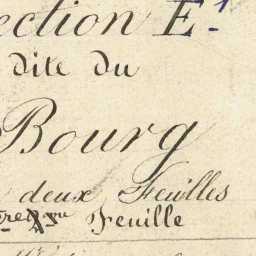 ection E.1
dite du
Bourg
deux Feuilles
Feuille